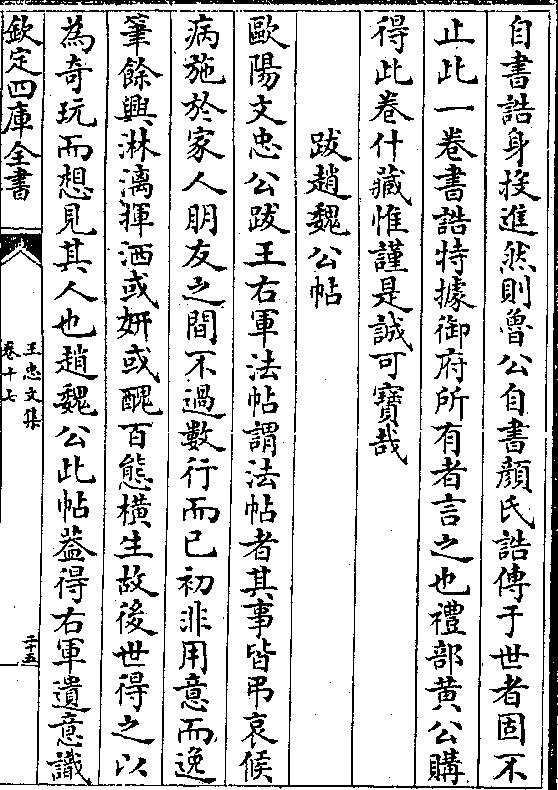 自書誥身投進然則魯公自書顔氏誥傳于世者固不
止此一卷書誥特據御府所有者言之也禮部黄公購
得此卷什藏惟謹是誠可寶哉
跋趙魏公帖
歐陽文忠公跋王右軍法帖謂法帖者其事皆弔哀候
病施於家人朋友之間不過數行而已初非用意而逸
筆餘興淋漓揮洒或妍或醜百態橫生故後世得之以
為奇玩而想見其人也趙魏公此帖葢得右軍遺意識
欽定四庫全書
王忠文集
卷十七
二十五